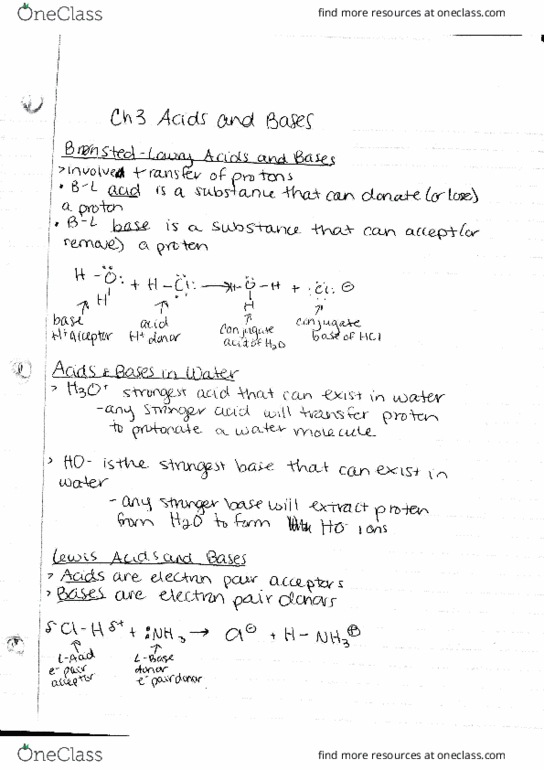 OneClass
find more resources at oneclass.com
Ch3 Acids and Bases
Brønsted-Lowry Acids and Bases
> involved transfer of protons
• B-L acid is a substance that can donate (or lose)
a proton
• B-L base is a substance that can accept (or
remove) a proton
H-Ö: + H-Cl: → H-Ö-H + :Cl: ⊖
H H
base
H+ acceptor
acid
H+ donor
conjugate
acid of H2O
conjugate
base of HCl
Acids & Bases in Water
> H3O+ strongest acid that can exist in water
- any stronger acid will transfer proton
to protonate a water molecule
> HO- is the strongest base that can exist in
water
- any stronger base will extract proton
from H2O to form HO- ions
Lewis Acids and Bases
> Acids are electron pair acceptors
> Bases are electron pair donors
δ- Cl-H δ+ + :NH3 → Cl⊖ + H-NH3⊕
L-Acid
e- pair
acceptor
L-Base
donor
e- pair donor
OneClass
find more resources at oneclass.com